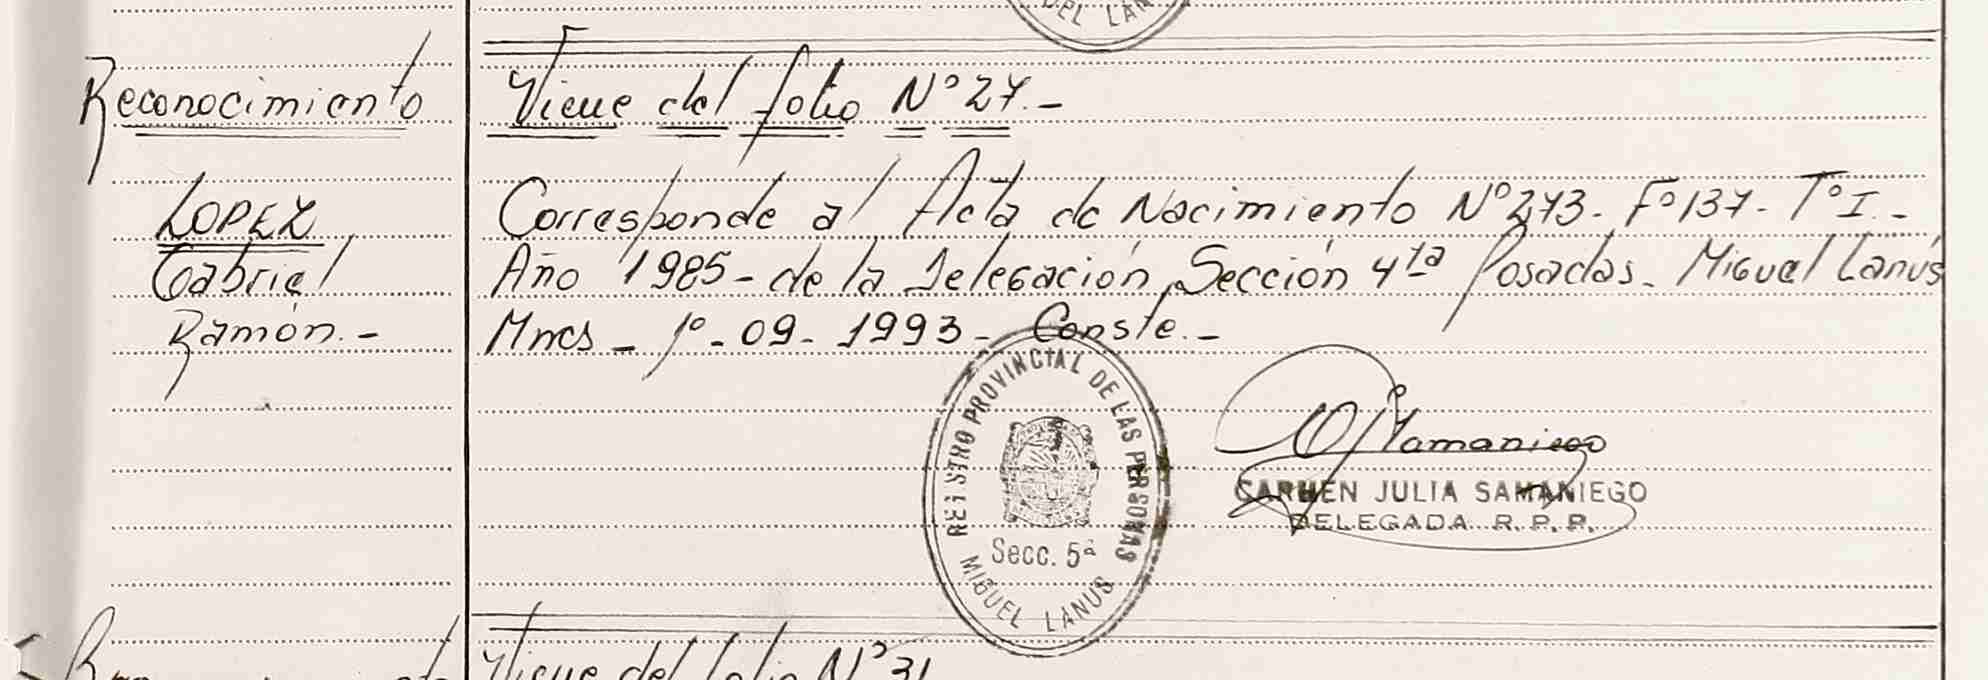 DEL LAN
Reconocimiento
Viene del folio Nº 27.-
LOPEZ
Gabriel
Ramón.-
Corresponde al Acta de Nacimiento Nº 273. Fº 137- Tº I.-
Año 1985- de la Delegación Sección 4ta Posadas. Miguel Lanús
Mnes - 1º - 09 - 1993 - Conste.-
REGISTRO PROVINCIAL DE LAS PERSONAS
Secc. 5ª
MIGUEL LANUS
CARMEN JULIA SAMANIEGO
DELEGADA R.P.P.
Viene del folio Nº 31